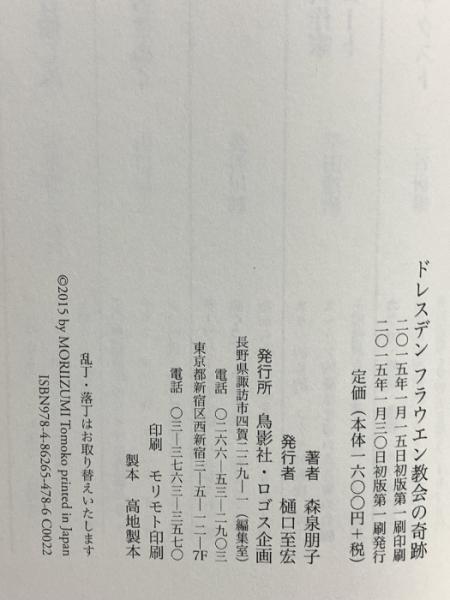 ドレスデン フラウエン教会の奇跡
二〇一五年一月一五日初版第一刷印刷
二〇一五年一月三〇日初版第一刷発行
定価（本体一六〇〇円＋税）
著者 森泉朋子
発行者 樋口至宏
発行所 鳥影社・ロゴス企画
長野県諏訪市四賀二二九―一（編集室）
電話 〇二六六―五三―二九〇三
東京都新宿区西新宿三―五―一二―7F
電話 〇三―三七六三―三五七〇
印刷 モリモト印刷
製本 高地製本
乱丁・落丁はお取り替えいたします
©2015 by MORIIZUMI Tomoko printed in Japan
ISBN978-4-86265-478-6 C0022